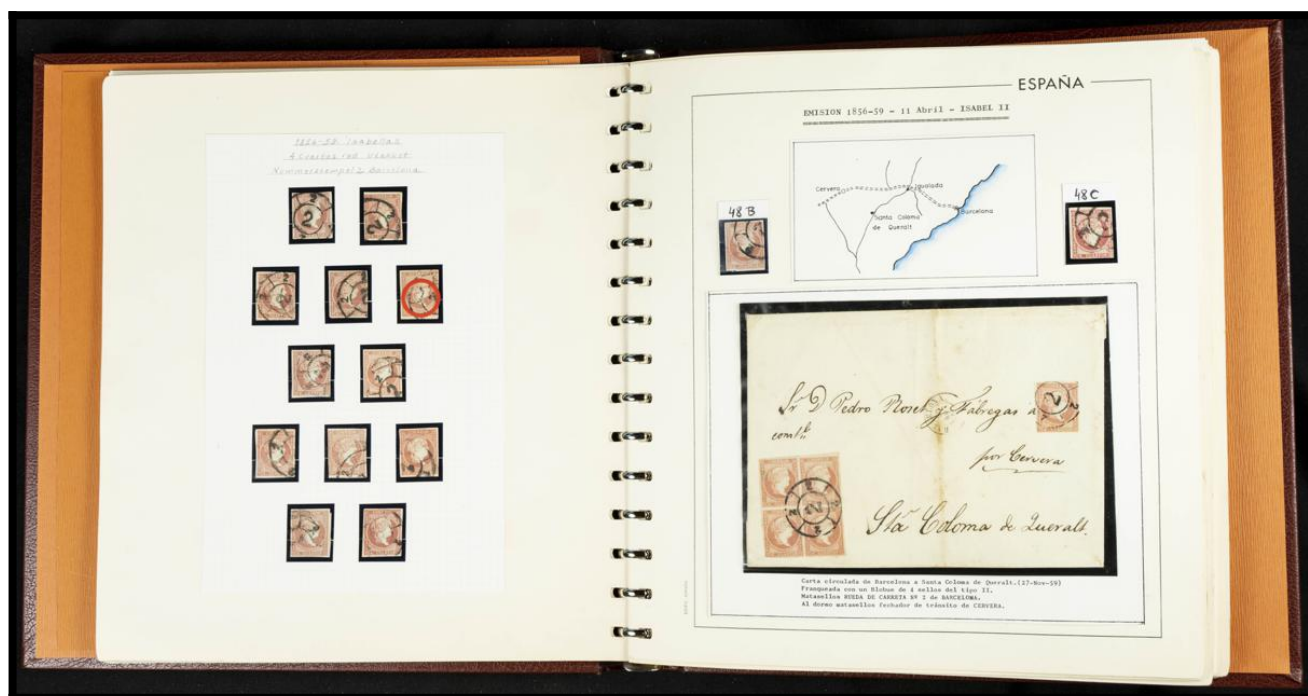 1856-59 Isabella
4 Cuartos rod
Nummerstempel 2 Barcelona
ESPAÑA
EMISION 1856-59 - 11 Abril - ISABEL II
Cervera
Igualada
Barcelona
Santa Coloma
de Queralt
48 B
48 C
Sr D Pedro Roset y Fábregas
por Cervera
Sta Coloma de Queralt.
Carta circulada de Barcelona a Santa Coloma de Queralt.(27-Nov-59)
Franqueada con un Bloque de 4 sellos del tipo II.
Matasellos RUEDA DE CARRETA Nº 2 de BARCELONA.
Al dorso matasellos fechador de tránsito de CERVERA.